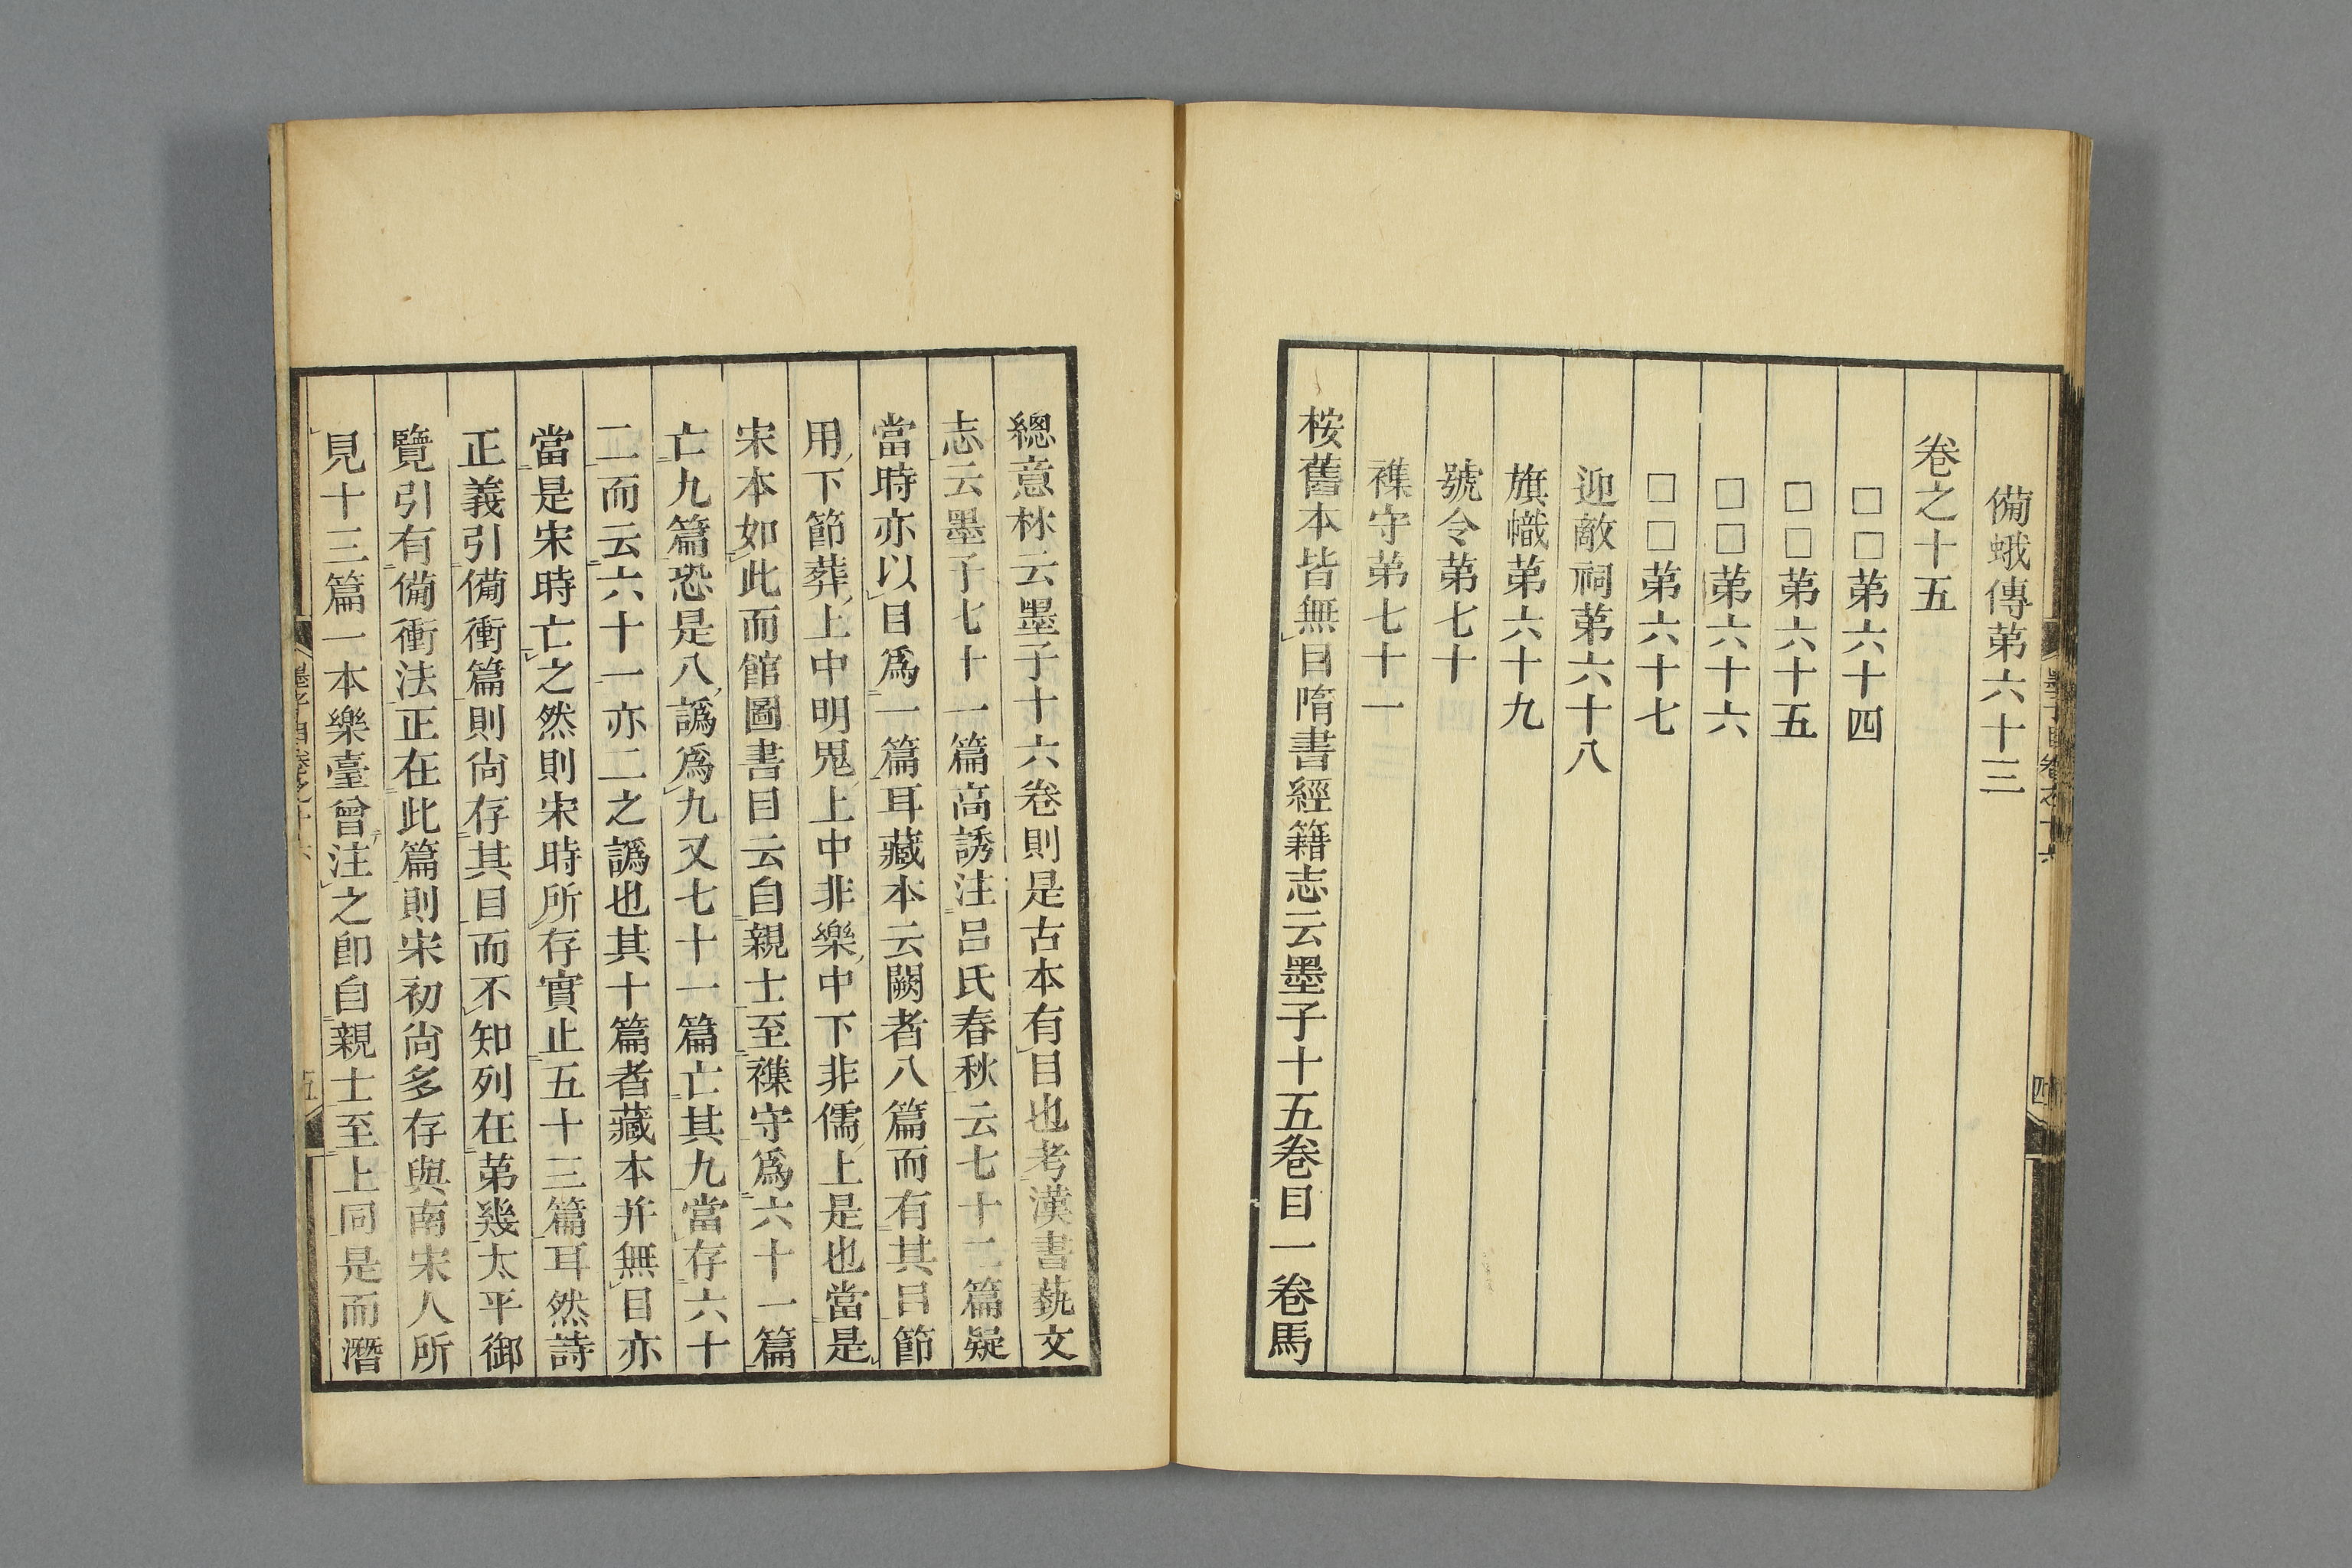 備蛾傳第六十三
卷之十五
□□第六十四
□□第六十五
□□第六十六
□□第六十七
迎敵祠第六十八
旗幟第六十九
號令第七十
襍守第七十一
桉舊本皆無目隋書經籍志云墨子十五卷目一卷馬
四
總意林云墨子十六卷則是古本有目也考漢書蓺文
志云墨子七十一篇高誘注呂氏春秋云七十二篇疑
當時亦以目爲一篇耳藏本云闕者八篇而有其目節
用下節葬上中明鬼上中非樂中下非儒上是也當是
宋本如此而館圖書目云自親士至襍守爲六十一篇
亡九篇恐是八譌爲九又七十一篇亡其九當存六十
二而云六十一亦二之譌也其十篇者藏本幷無目亦
當是宋時亡之然則宋時所存實止五十三篇耳然詩
正義引備衝篇則尙存其目而不知列在第幾太平御
覽引有備衝法正在此篇則宋初尙多存與南宋人所
見十三篇一本樂臺曾注之卽自親士至上同是而潛
五